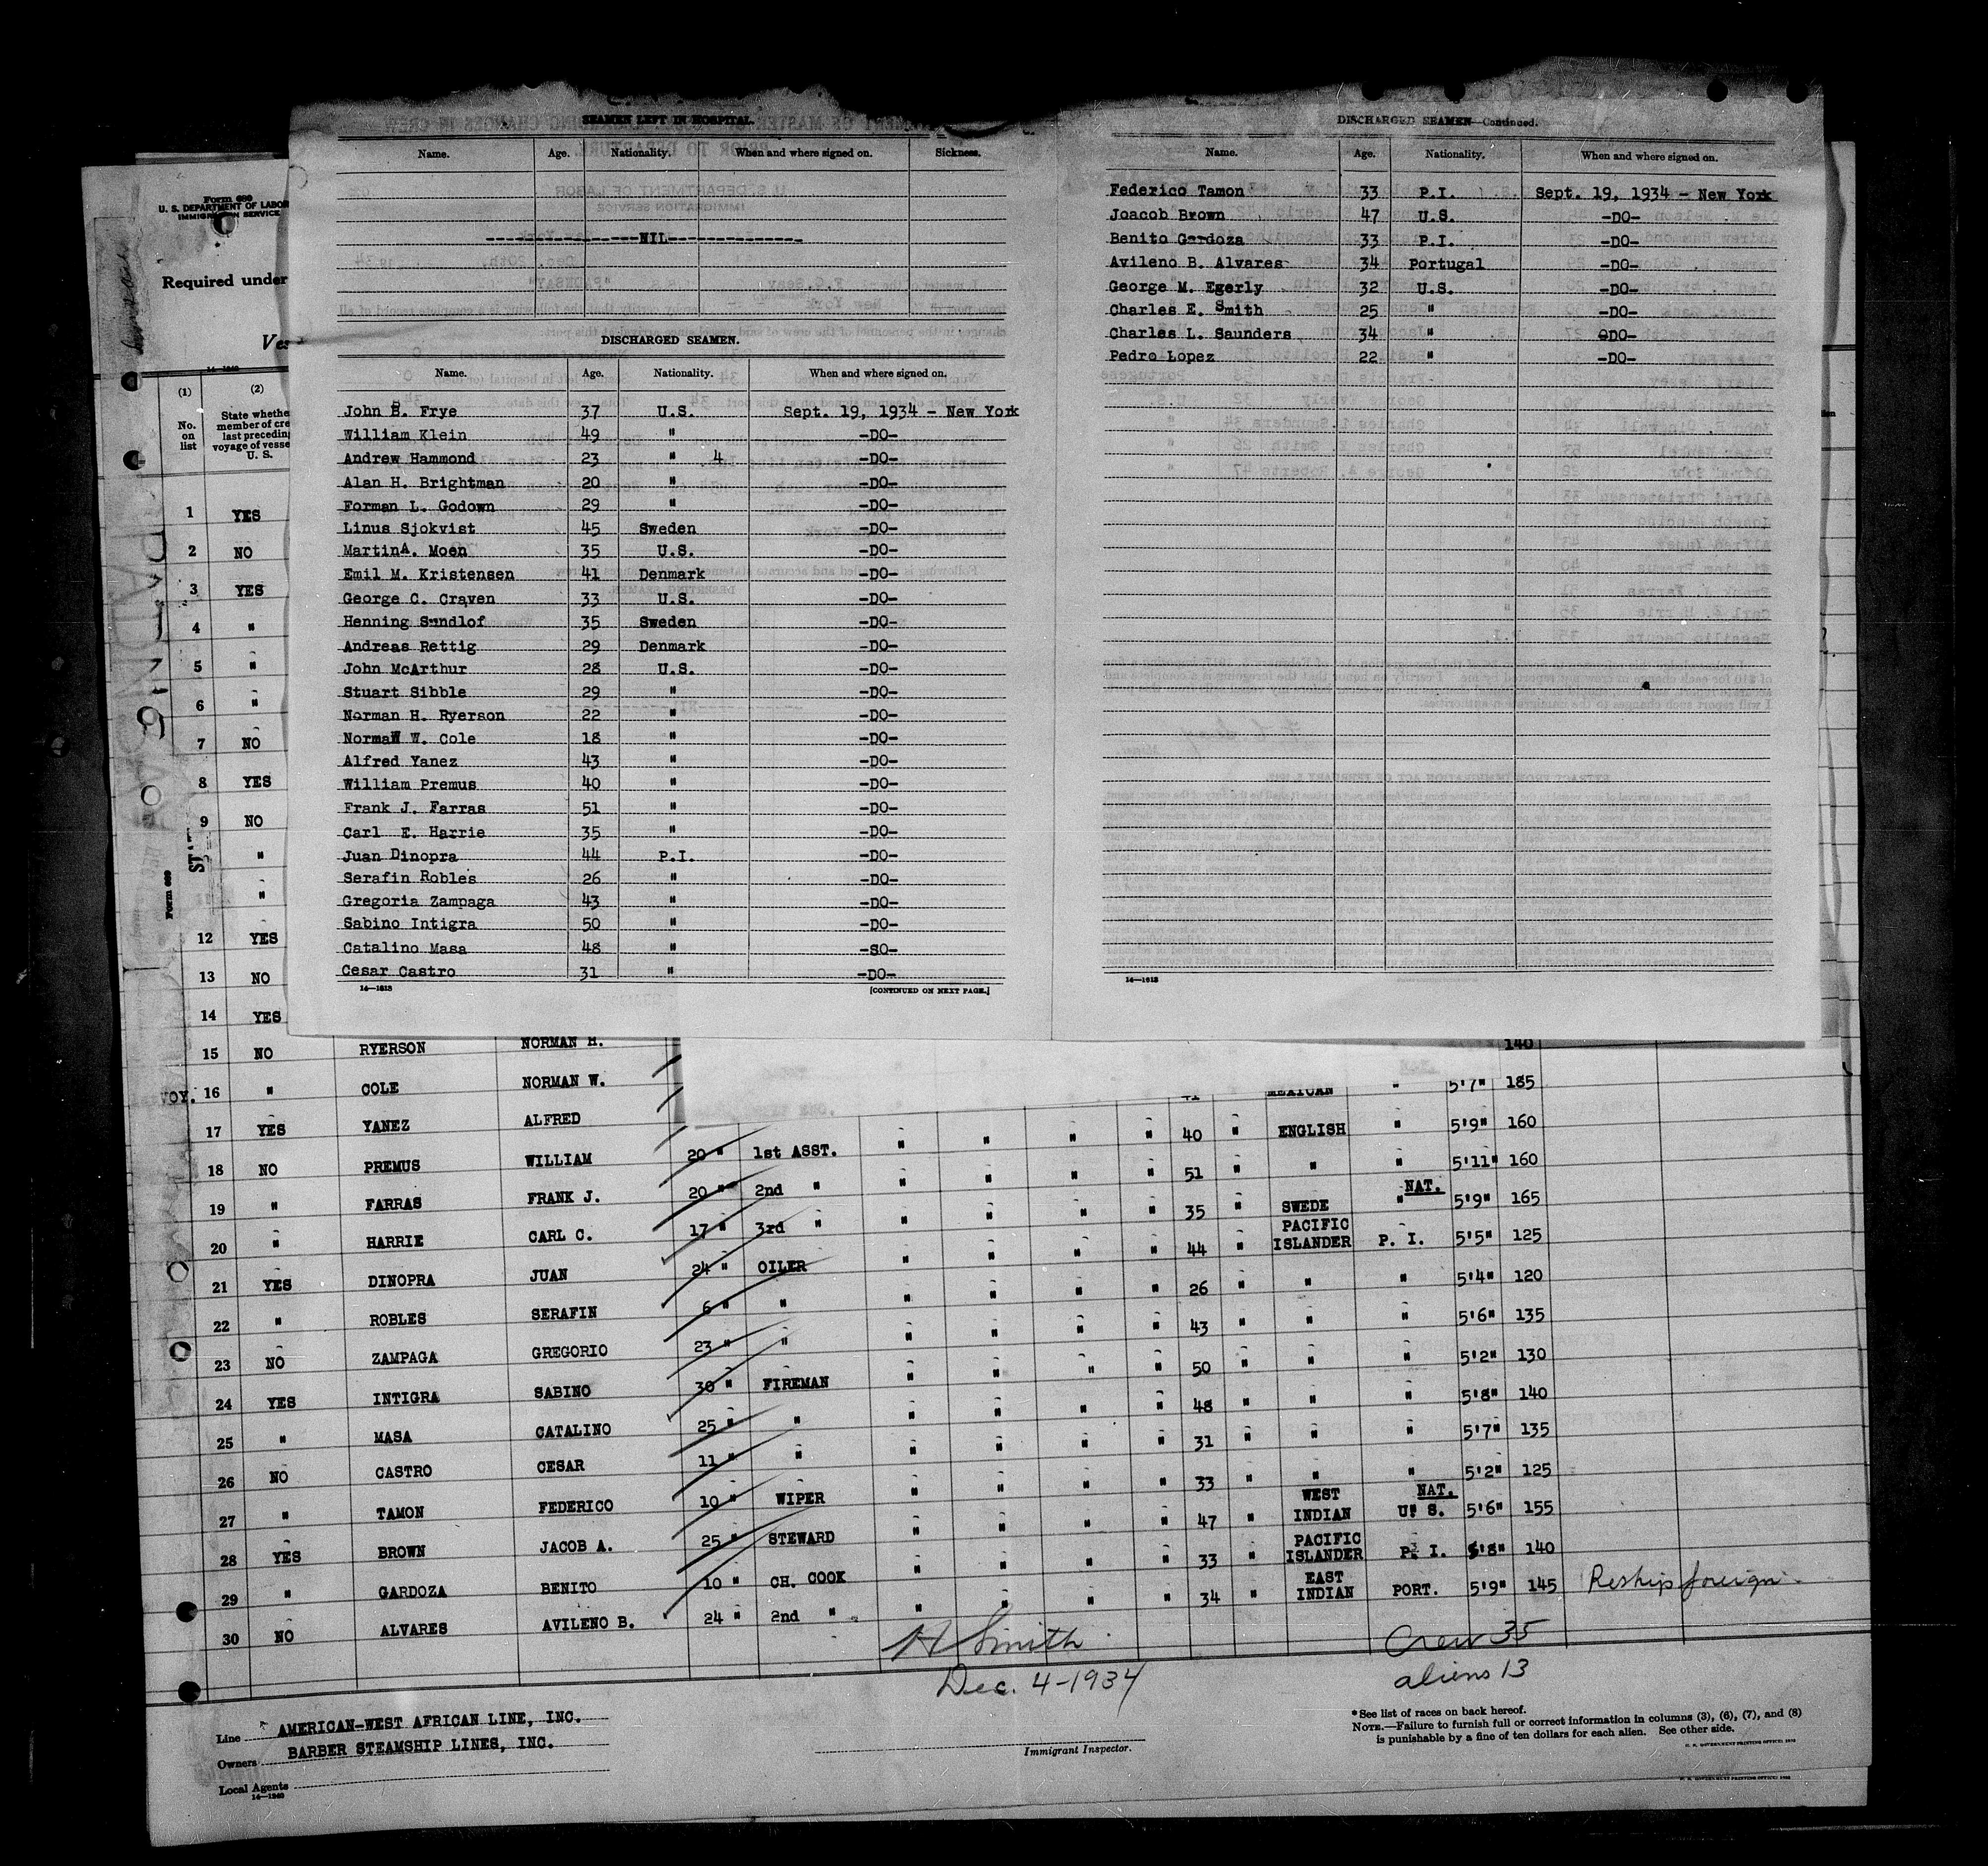 SEAMEN LEFT IN HOSPITAL.
Name. Age. Nationality. When and where signed on. Sickness.
----------------NIL--------------
DISCHARGED SEAMEN.
Name. Age. Nationality. When and where signed on.
John B. Frye 37 U.S. Sept. 19, 1934 - New York
William Klein 49 " -DO-
Andrew Hammond 23 " 4 -DO-
Alan H. Brightman 20 " -DO-
Forman L. Godown 29 " -DO-
Linus Sjokvist 45 Sweden -DO-
MartinA. Moen 35 U.S. -DO-
Emil M. Kristensen 41 Denmark -DO-
George C. Craven 33 U.S. -DO-
Henning Sundlof 35 Sweden -DO-
Andreas Rettig 29 Denmark -DO-
John McArthur 28 U.S. -DO-
Stuart Sibble 29 " -DO-
Norman H. Ryerson 22 " -DO-
Norman W. Cole 18 " -DO-
Alfred Yanez 43 " -DO-
William Premus 40 " -DO-
Frank J. Farras 51 " -DO-
Carl E. Harrie 35 " -DO-
Juan Dinopra 44 P.I. -DO-
Serafin Robles 26 " -DO-
Gregoria Zampaga 43 " -DO-
Sabino Intigra 50 " -DO-
Catalino Masa 48 " -SO-
Cesar Castro 31 " -DO-
14—1618 [CONTINUED ON NEXT PAGE.]
DISCHARGED SEAMEN—Continued.
Name. Age. Nationality. When and where signed on.
Federico Tamon 33 P.I. Sept. 19, 1934 - New York
Joacob Brown 47 U.S. -DO-
Benito Gardoza 33 P.I. -DO-
Avileno B. Alvares 34 Portugal -DO-
George M. Egerly 32 U.S. -DO-
Charles E. Smith 25 " -DO-
Charles L. Saunders 34 " -DO-
Pedro Lopez 22 " -DO-
14—1618
Form 680
U. S. DEPARTMENT OF LABOR
IMMIGRATION SERVICE
Required under
Ves
14—1240
(1) (2)
No. on list
State whether
member of cre
last preceding
voyage of vesse
U. S.
1 YES
2 NO
3 YES
4 "
5 "
6 "
7 NO
8 YES
9 NO
"
"
12 YES
13 NO
14 YES
15 NO RYERSON NORMAN H. 140
16 " COLE NORMAN W. MEXICAN " 5'7" 185
17 YES YANEZ ALFRED 40 " ENGLISH " 5'9" 160
18 NO PREMUS WILLIAM 20 " 1st ASST. " " " " 51 " " " 5'11" 160
19 " FARRAS FRANK J. 20 " 2nd " " " " " 35 " SWEDE NAT. " 5'9" 165
20 " HARRIE CARL C. 17 " 3rd " " " " " 44 " PACIFIC ISLANDER P. I. 5'5" 125
21 YES DINOPRA JUAN 24 " OILER " " " " 26 " " " 5'4" 120
22 " ROBLES SERAFIN 6 " " " " " " 43 " " " 5'6" 135
23 NO ZAMPAGA GREGORIO 23 " " " " " " 50 " " " 5'2" 130
24 YES INTIGRA SABINO 30 " FIREMAN " " " " 48 " " " 5'8" 140
25 " MASA CATALINO 25 " " " " " " 31 " " " 5'7" 135
26 NO CASTRO CESAR 11 " " " " " " 33 " " " 5'2" 125
27 " TAMON FEDERICO 10 " WIPER " " " " 47 " WEST INDIAN NAT. U. S. 5'6" 155
28 YES BROWN JACOB A. 25 " STEWARD " " " " 33 " PACIFIC ISLANDER P. I. 5'8" 140
29 " GARDOZA BENITO 10 " CH. COOK " " " " 34 " EAST INDIAN PORT. 5'9" 145 Reship foreign
30 NO ALVARES AVILENO B. 24 " 2nd "
H Smith
Dec. 4-1934
Crew 35
aliens 13
Line AMERICAN-WEST AFRICAN LINE, INC.
Owners BARBER STEAMSHIP LINES, INC.
Local Agents
14—1240
Immigrant Inspector.
*See list of races on back hereof.
NOTE.—Failure to furnish full or correct information in columns (3), (6), (7), and (8)
is punishable by a fine of ten dollars for each alien. See other side.
U. S. GOVERNMENT PRINTING OFFICE: 1932